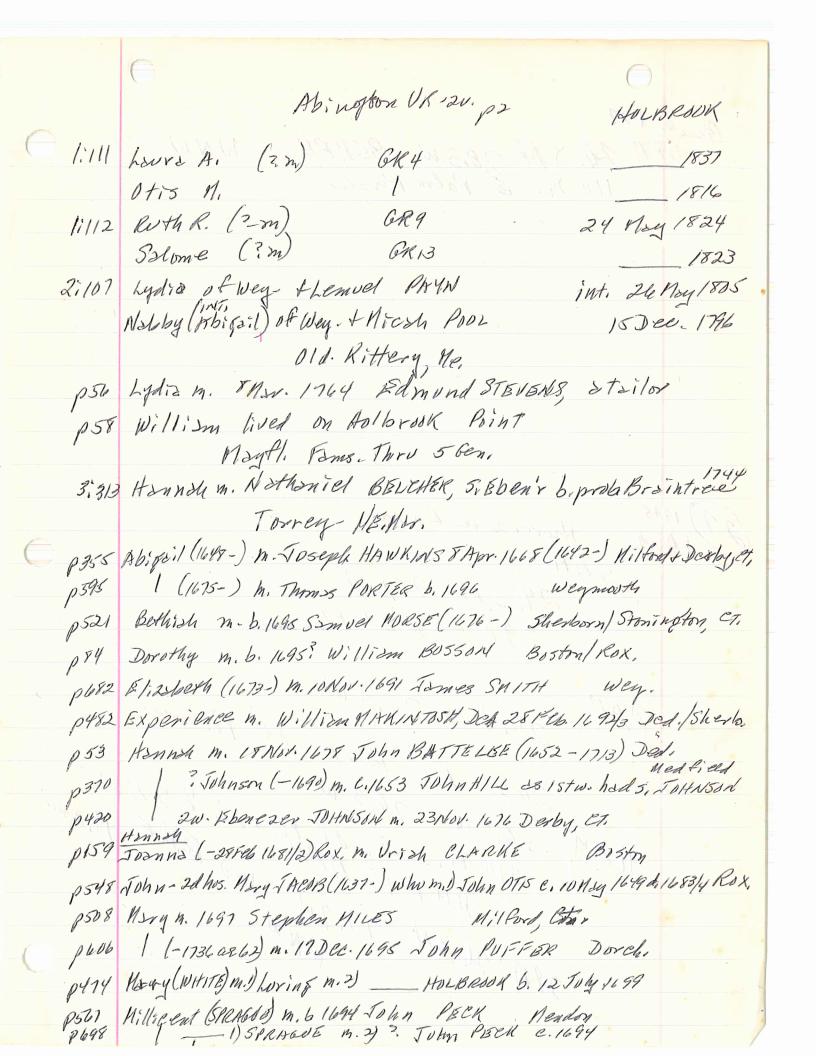 Abington VR-2v. p2 HOLBROOK
1:111 Laura A. (?m) GR4 ____ 1837
Otis M. | ____ 1816
1:112 Ruth R. (?-m) GR9 24 May 1824
Salome (?m) GR13 ____ 1823
2:107 Lydia of Wey & Lemuel PAYN int. 26 May 1805
(INT.
Nabby (Abigail) of Wey. & Micah POOL 15 Dec. 1796
Old. Kittery, Me.
p56 Lydia m. 8 Mar. 1764 Edmund STEVENS, a tailor
p58 William lived on Holbrook Point
Mayfl. Fams. Thru 5 Gen.
1744
3:313 Hannah m. Nathaniel BELCHER, s. Eben'r b. prob Braintree
Torrey NE. Mar.
p355 Abigail (1648-) m. Joseph HAWKINS 8 Apr. 1668 (1642-) Milford & Derby, Ct.
p595 | (1675-) m. Thomas PORTER b. 1696 Weymouth
p521 Bethiah m. b. 1695 Samuel MORSE (1676-) Sherborn/Stonington, CT.
p84 Dorothy m. b. 1695? William BOSSON Boston/Rox.
p682 Elizabeth (1673-) m. 10 Nov. 1691 James SMITH Wey.
p482 Experience m. William MAKINTOSH, Dea 28 Feb. 1692/3 Ded./Sherb
p53 Hannah m. 18 Nov. 1678 John BATTELLE (1652-1713) Ded.
Medfield
p370 ? Johnson (-1690) m. c. 1653 John HILL as 1st w. had s. JOHNSON
p420 2w. Ebenezer JOHNSON m. 23 Nov. 1676 Derby, CT.
Hannah
p159 Joanna (-28 Feb 1681/2) Rox. m. Uriah CLARKE Boston
p548 John - 2d hus. Mary JACOB (1637-) who m. 1) John OTIS c. 10 May 1649 d. 1683/4 Rox.
p508 Mary m. 1697 Stephen MILES Milford,
p606 | (-1736 ae 62) m. 17 Dec. 1695 John PUFFER Dorch.
p474 Mary (WHITE) m. 1) Loring m. 2) ____ HOLBROOK b. 12 July 1699
p567 Millicent (SPRAGUE) m. b 1694 John PECK Mendon
p698 | ____ 1) SPRAGUE m. 2) ? John PECK c. 1694